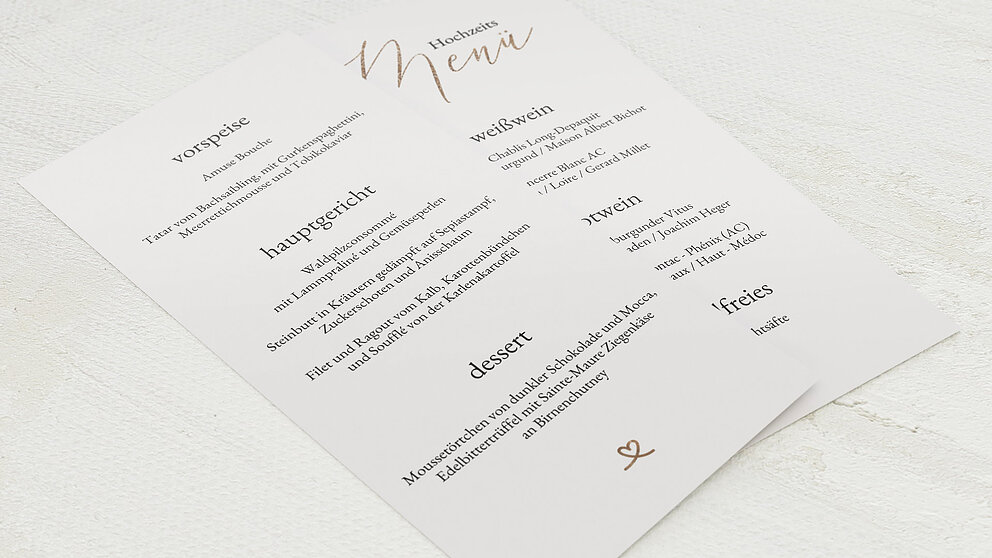 vorspeise
Amuse Bouche
Tatar vom Bachsaibling, mit Gurkenspaghettini,
Meerrettichmousse und Tobikokaviar
hauptgericht
Waldpilzconsommé
mit Lammpraliné und Gemüseperlen
Steinbutt in Kräutern gedämpft auf Sepiastampf,
Zuckerschoten und Anisschaum
Filet und Ragout vom Kalb, Karottenbündchen
und Soufflé von der Karlenakartoffel
dessert
Moussetörtchen von dunkler Schokolade und Mocca,
Edelbittertrüffel mit Sainte-Maure Ziegenkäse
an Birnenchutney
Hochzeits
Menü
weißwein
Chablis Long-Depaquit
urgund / Maison Albert Bichot
ncerre Blanc AC
/ Loire / Gerard Millet
otwein
burgunder Vitus
aden / Joachim Heger
ntac - Phénix (AC)
aux / Haut - Médoc
lfreies
htsäfte